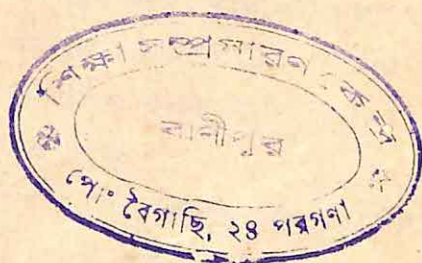 শিক্ষা সম্প্রসারণ কেন্দ্র
রানীপুর
পোঃ বৈগাছি, ২৪ পরগণা